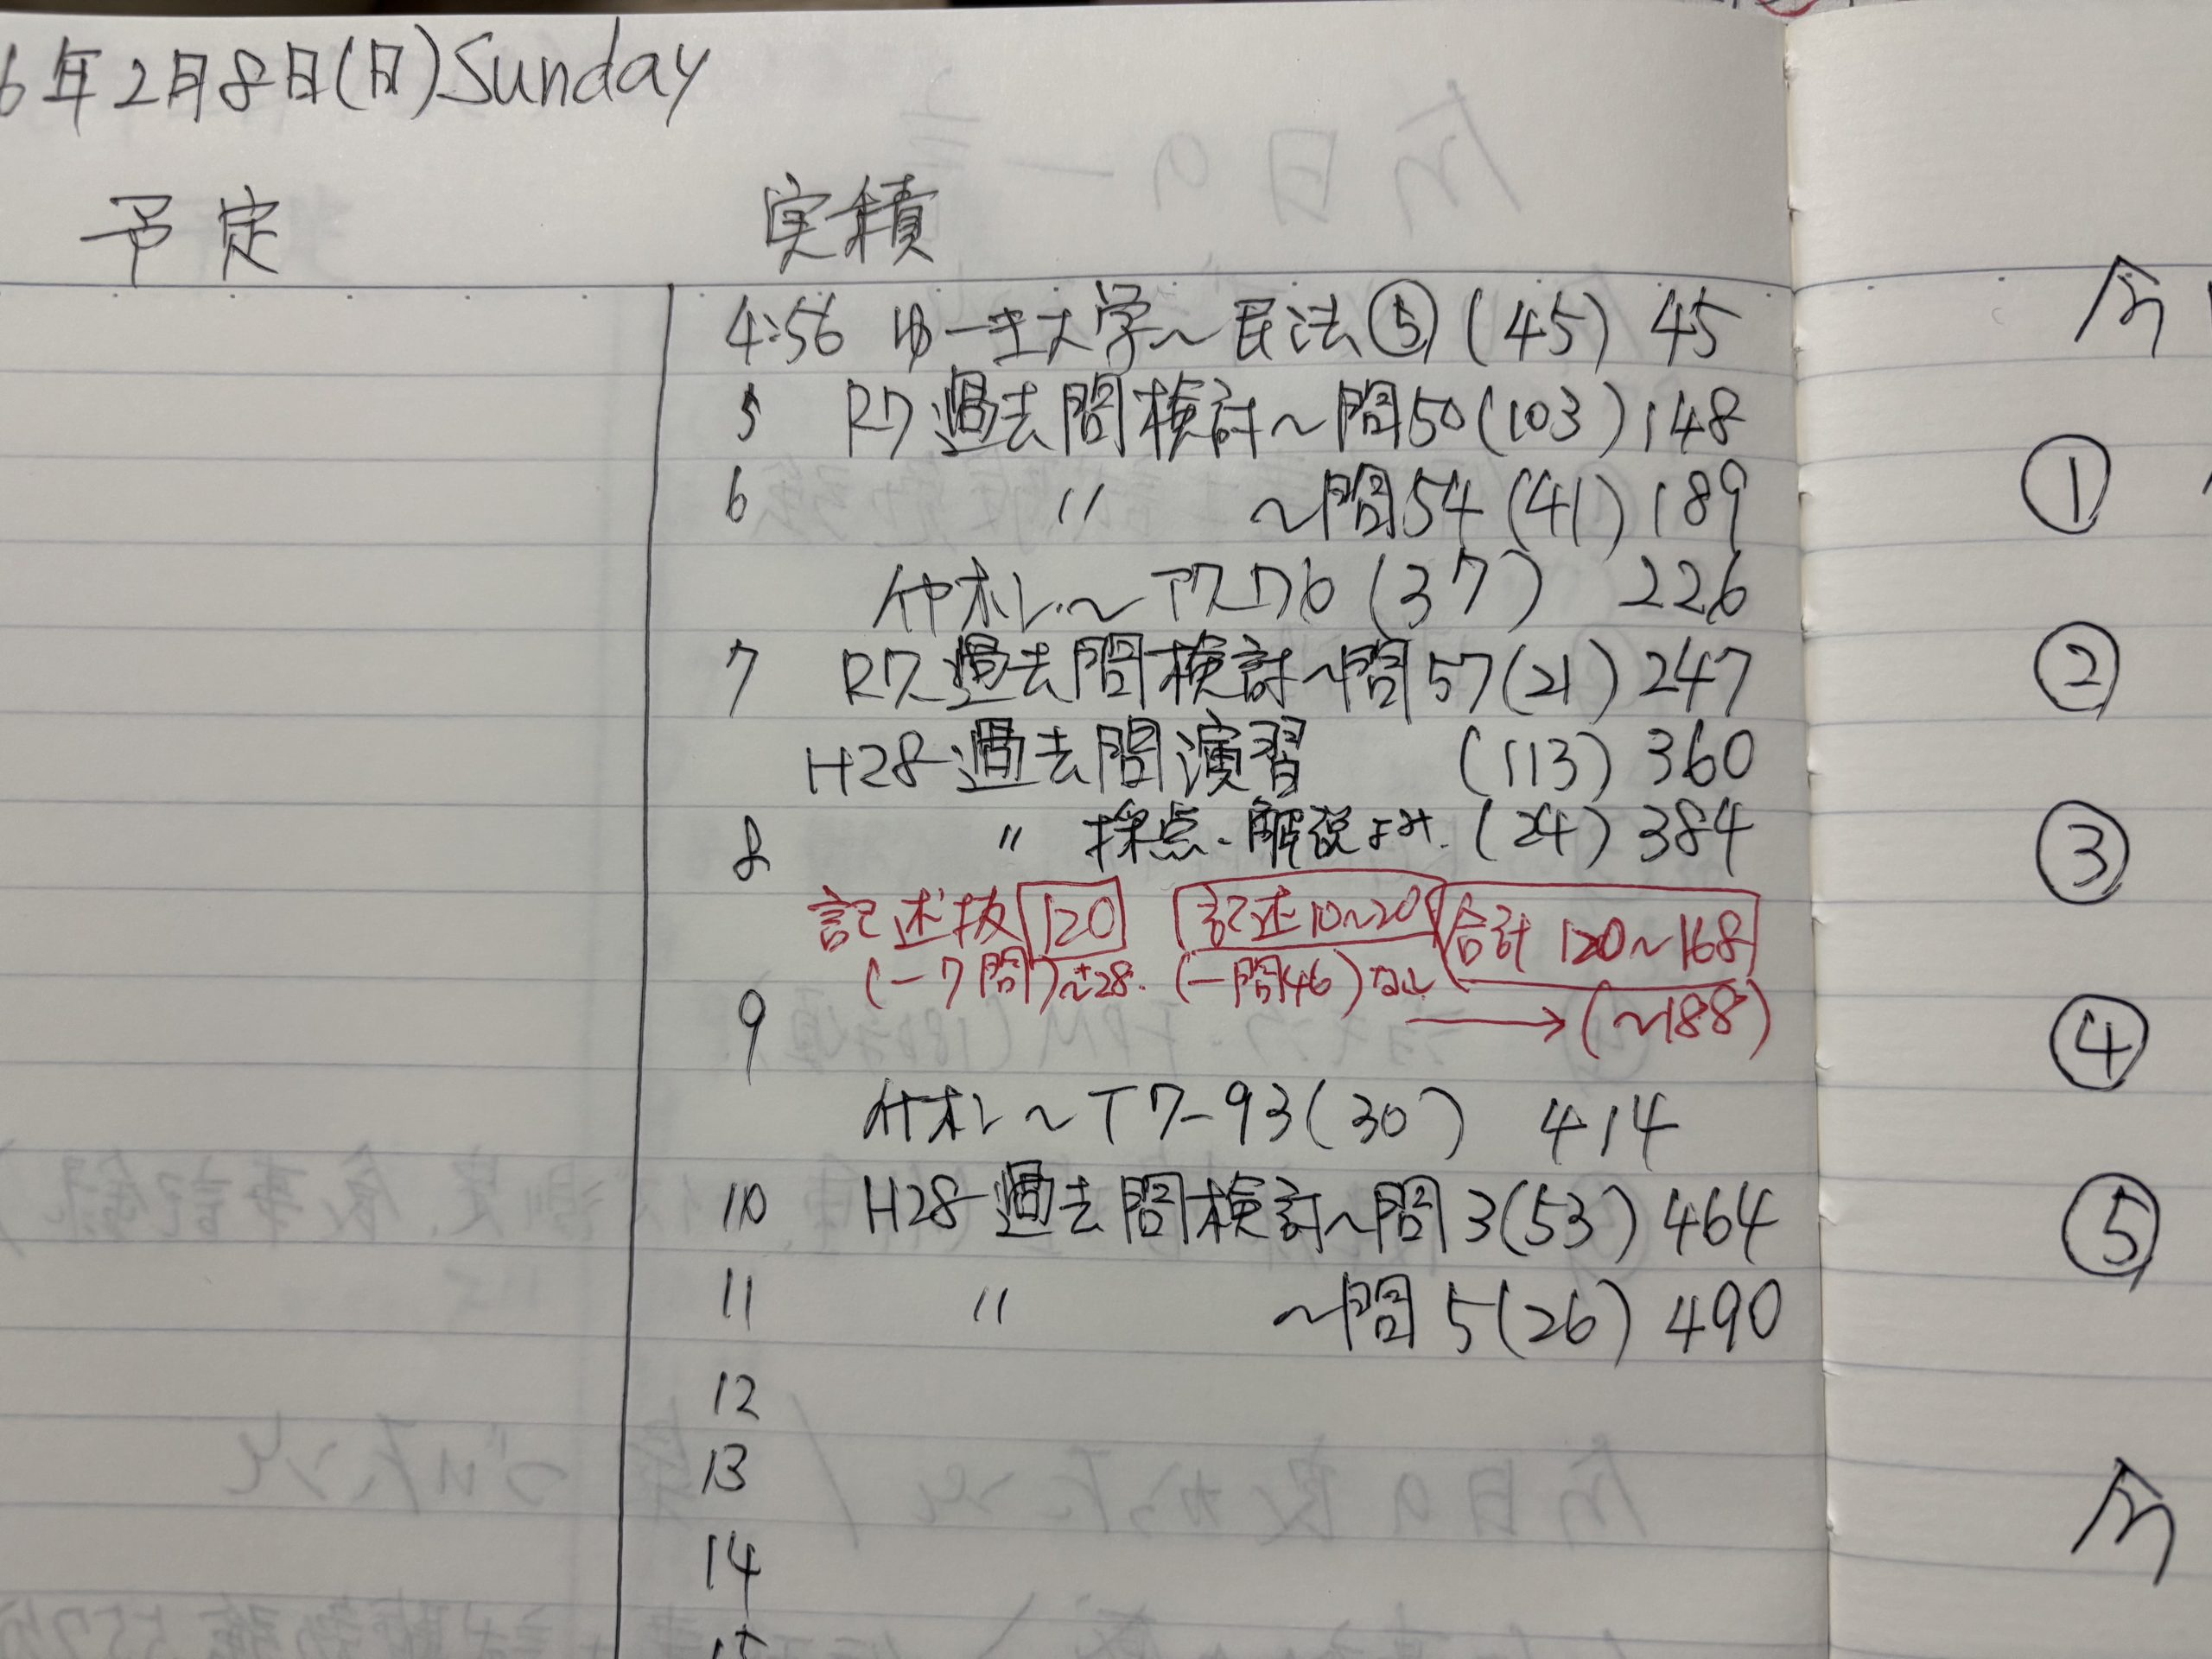 6年2月8日(日)Sunday
予定 実積
4:56 ゆーき大学~民法⑤(45) 45
5 R7過去問検討~問50(103)148
6 〃 ~問54(41)189
(37) 226
7 R7過去問検討~問57(21)247
H28過去問演習 (113)360
8 〃 採点・解説よみ.(24)384
記述抜120 記述10~20 合計120~168
(-7問)~+28. (-問46)なし
9 →(~188)
~T7-93(30) 414
10 H28過去問検討~問3(53)464
11 〃 ~問5(26)490
12
13
14
15
今
①
②
③
④
⑤
今